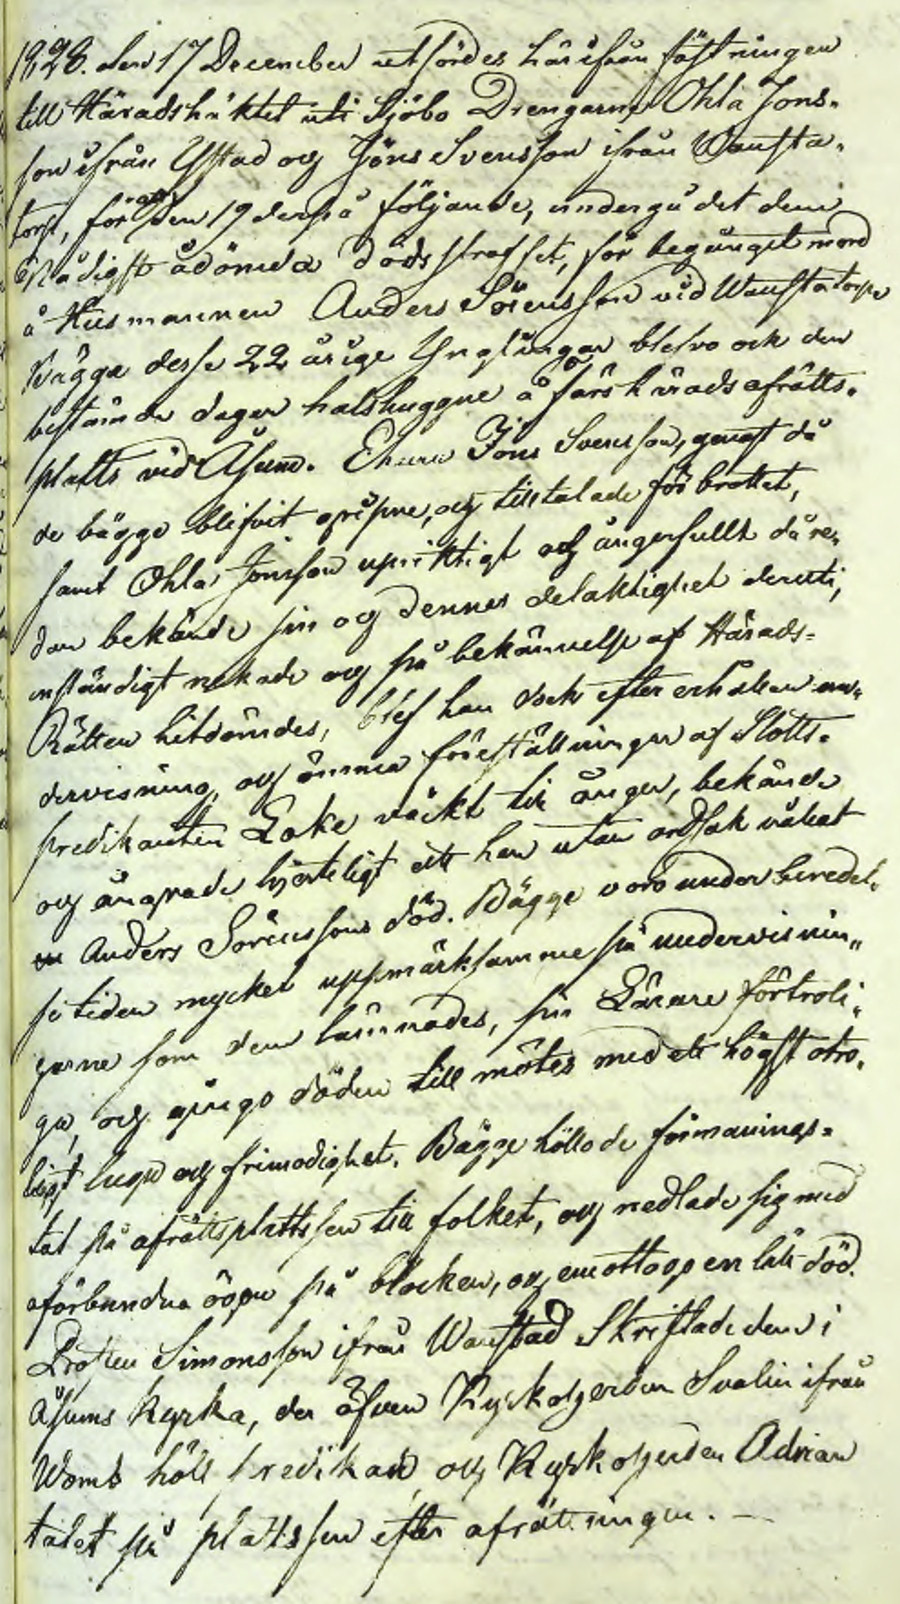 1828. den 17 December utfördes härifrån fästningen
till Häradshäktet uti Sjöbo Drengarne Ohla Jons-
son ifrån Ystad og Jöns Svensson ifrån Vansta-
torp, för att den 19 derpå följande, undergå det dem
Nådigst ådömda dödsstraffet, för begånget mord
å Husmannen Anders Sörensson vid Wanstatorp
Bägge desse 22 årige Ynglingar blefvo ock den
bestämde dagen halshuggne å Färs härads afrätts-
platts vid Åsum. Ehuru Jöns Svensson, genast då
de bägge blifvit gripne, og tilltalade för brottet,
samt Ohla Jönsson upriktigt og ångerfullt då re-
dan bekände sin og dennes delaktighet deruti,
enständigt nekade og på bekännelse af Härads-
Rätten hitdömdes, blef han dock efter erhållen un-
dervisning, og ömma föreställningar af Slotts-
predikanten Lake väckt till ånger, bekände
og ångrade hjerteligt att han utan ordsak vållat
Anders Sörenssons död. Bägge voro under beredel-
setiden mycket uppmärksamme på undervisnin-
garne som dem lämnades, sin Lärare förtroli-
ge, og gingo döden till mötes med ett högst otro-
ligt lugn og frimodighet. Bägge höllo de förmanings-
tal på afrättsplattssen till folket, og nedlade sig med
oförbundna ögon på blocken, og emottogo en lätt död.
Prosten Simonsson ifrån Wanstad Skriftade dem i
Åsums Kyrka, der äfven Kyrkoherden Svalin ifrån
Womb höll predikan, og Kyrkoherden Adrian
talet på platssen efter afrättningen. —